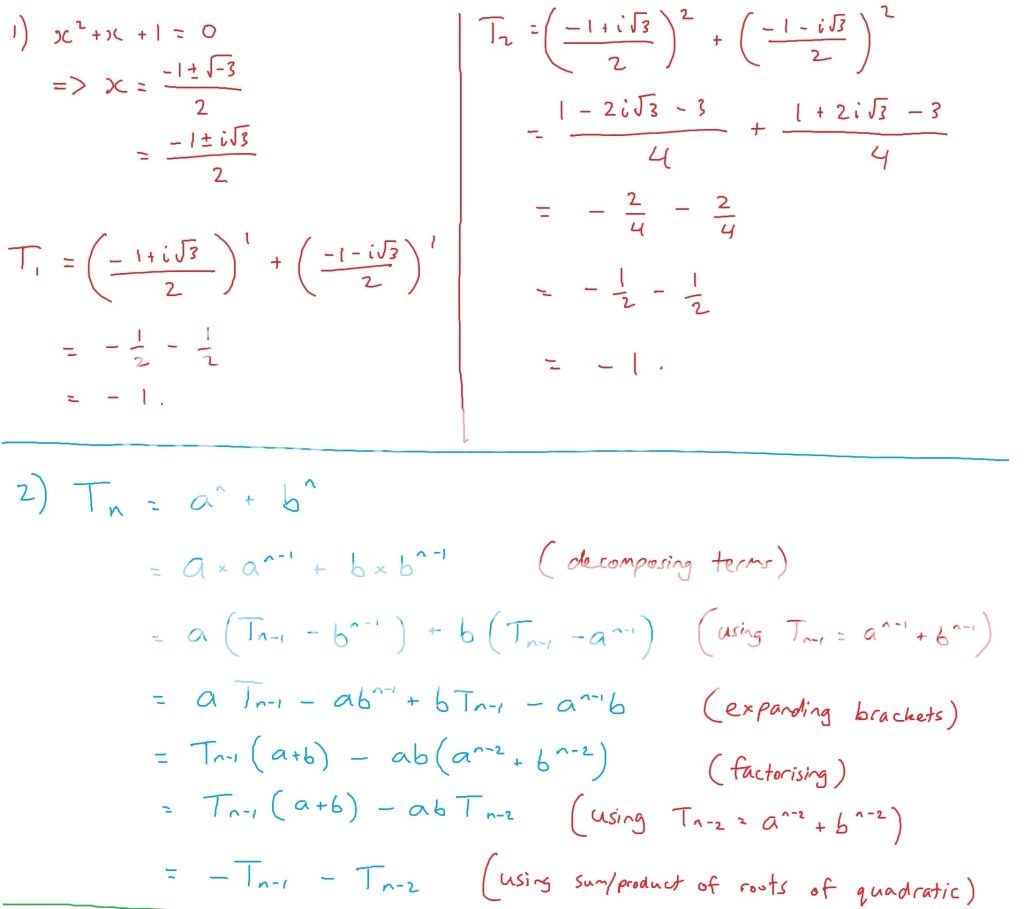 1) x² + x + 1 = 0
=> x = (-1 ± √-3)/2
= (-1 ± i√3)/2
T₁ = ((-1 + i√3)/2)¹ + ((-1 - i√3)/2)¹
= - 1/2 - 1/2
= - 1.
T₂ = ((-1 + i√3)/2)² + ((-1 - i√3)/2)²
= (1 - 2i√3 - 3)/4 + (1 + 2i√3 - 3)/4
= - 2/4 - 2/4
= - 1/2 - 1/2
= - 1.
2) Tₙ = aⁿ + bⁿ
= a × aⁿ⁻¹ + b × bⁿ⁻¹ (decomposing terms)
= a (Tₙ₋₁ - bⁿ⁻¹) + b (Tₙ₋₁ - aⁿ⁻¹) (using Tₙ₋₁ = aⁿ⁻¹ + bⁿ⁻¹)
= a Tₙ₋₁ - abⁿ⁻¹ + b Tₙ₋₁ - aⁿ⁻¹b (expanding brackets)
= Tₙ₋₁ (a+b) - ab (aⁿ⁻² + bⁿ⁻²) (factorising)
= Tₙ₋₁ (a+b) - ab Tₙ₋₂ (using Tₙ₋₂ = aⁿ⁻² + bⁿ⁻²)
= - Tₙ₋₁ - Tₙ₋₂ (using sum/product of roots of quadratic)